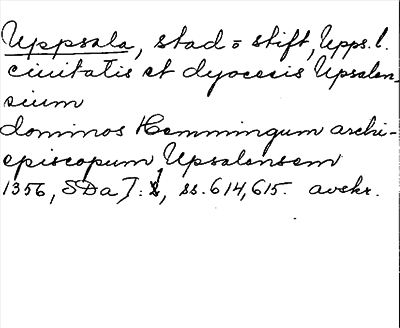 Uppsala, stad = stift, Upps. l.
civitatis et dyocesis Upsalen-
sium
dominos Hemmingum archi-
episcopum Upsalensem
1356, SDaT: 1, ss. 614, 615. avskr.